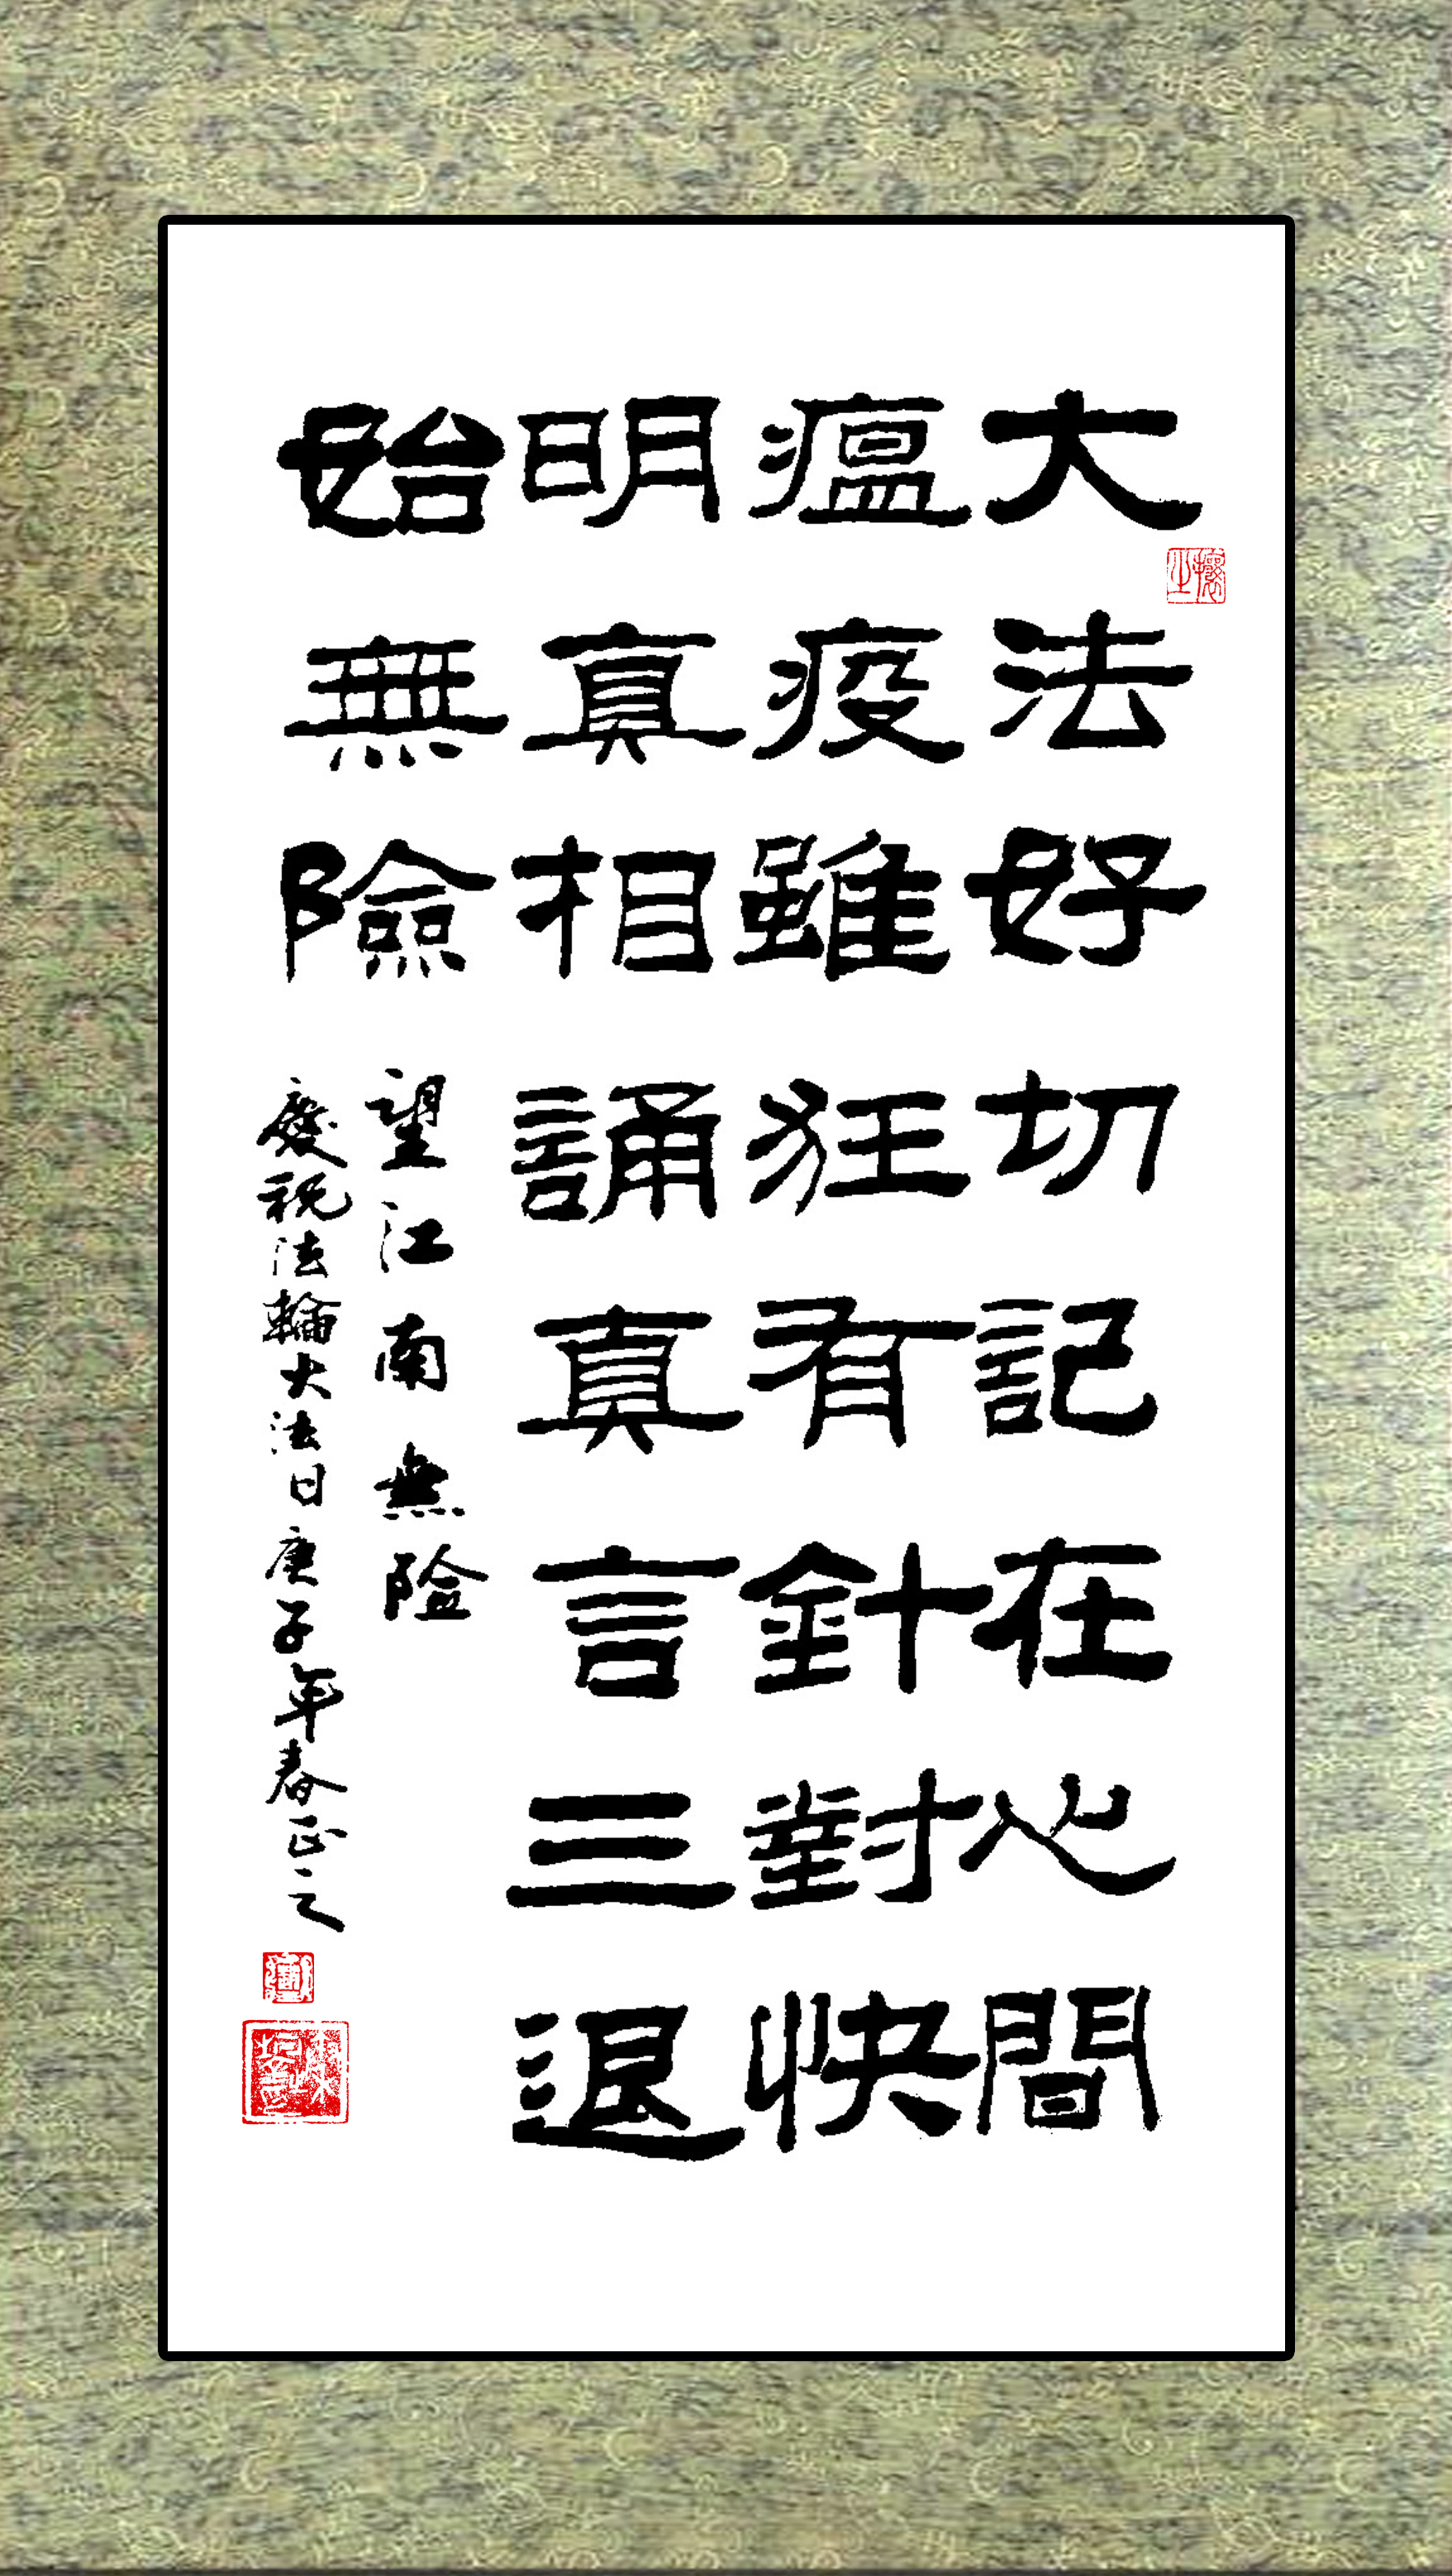 大法好切記在心間
瘟疫雖狂有針對快
明真相誦真言三退
始無險
望江南無險
慶祝法輪大法日庚子年春正之